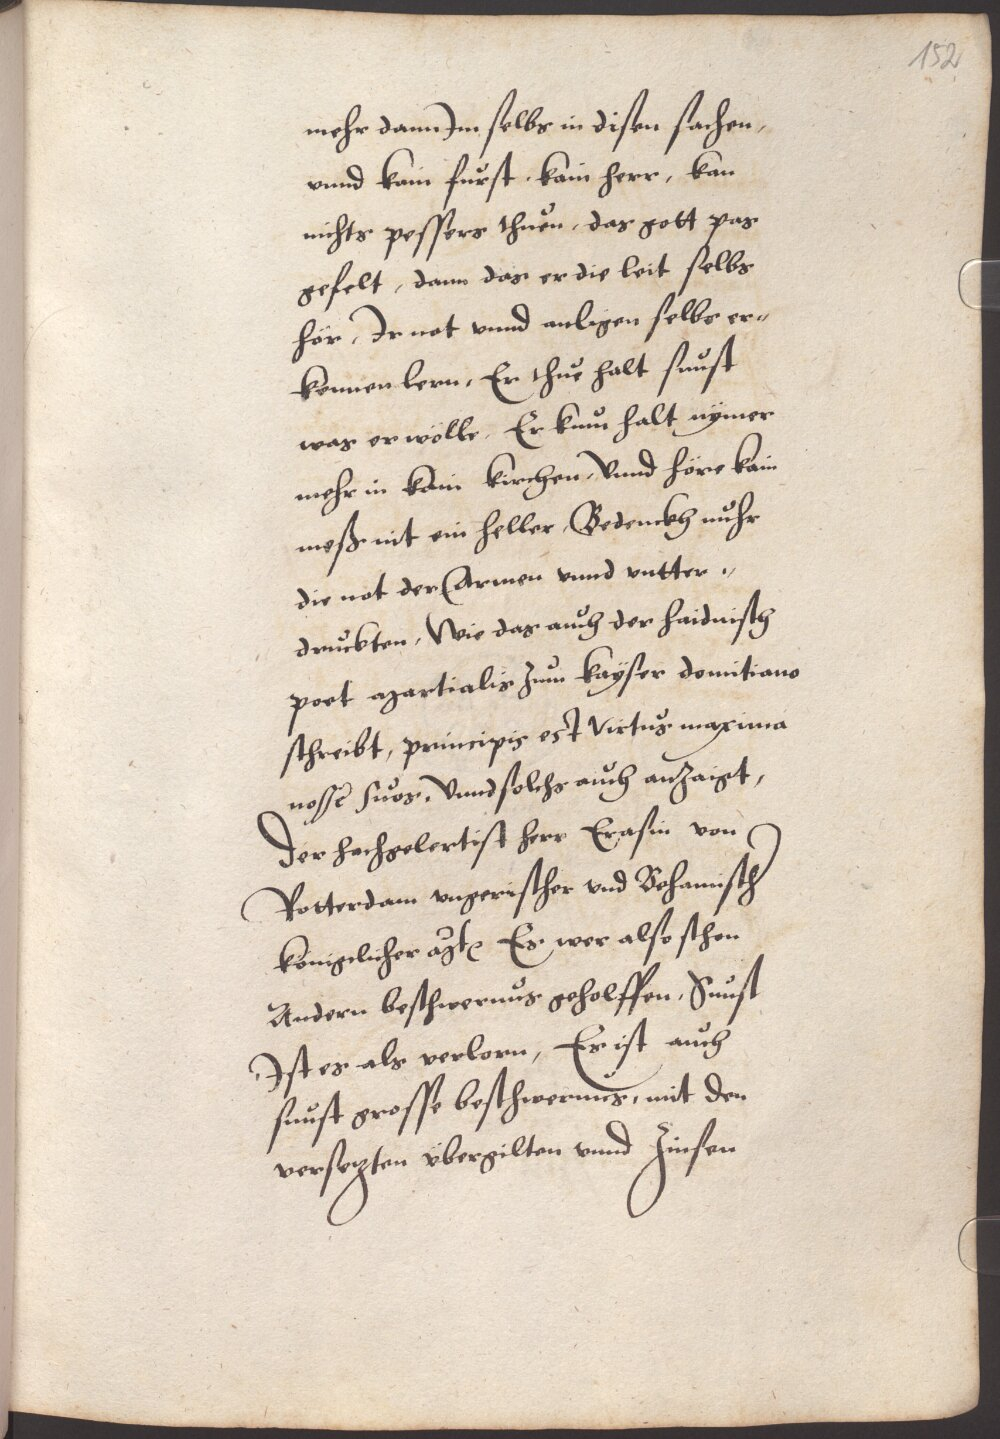 152
mehr dann Im selbs in disen sachen,
vnnd kain fürst, kain herr, kan
nichts pessers thuen, das gott pas
gefelt, dann das er die leit selbs
hör, Ir not vnnd anligen selbs er-
kennen lern, Er thue halt sunst
was er wölle, Er kum halt nÿmer
mehr in kain kirchen, Vnnd höre kain
meß nit ein heller Bedenckh nuhr
die not der Armen vnnd vntter-
druckten, Wie das auch der haidnisch
poet Martialis zum kaÿser domitiano
schreibt, principis est virtus maxima
nosse suos, Vnnd solchs auch anzaigt,
Der hochgelertist herr Erasm von
Rotterdam vngerischer vnd Behamisch
königclicher Mt Es wer also schon
Andern beschwernus geholffen, Sunst
Ist es als verlorn, Es ist auch
sunst grosse beschwernus, mit den
versezten vbergilten vnnd Zinsen